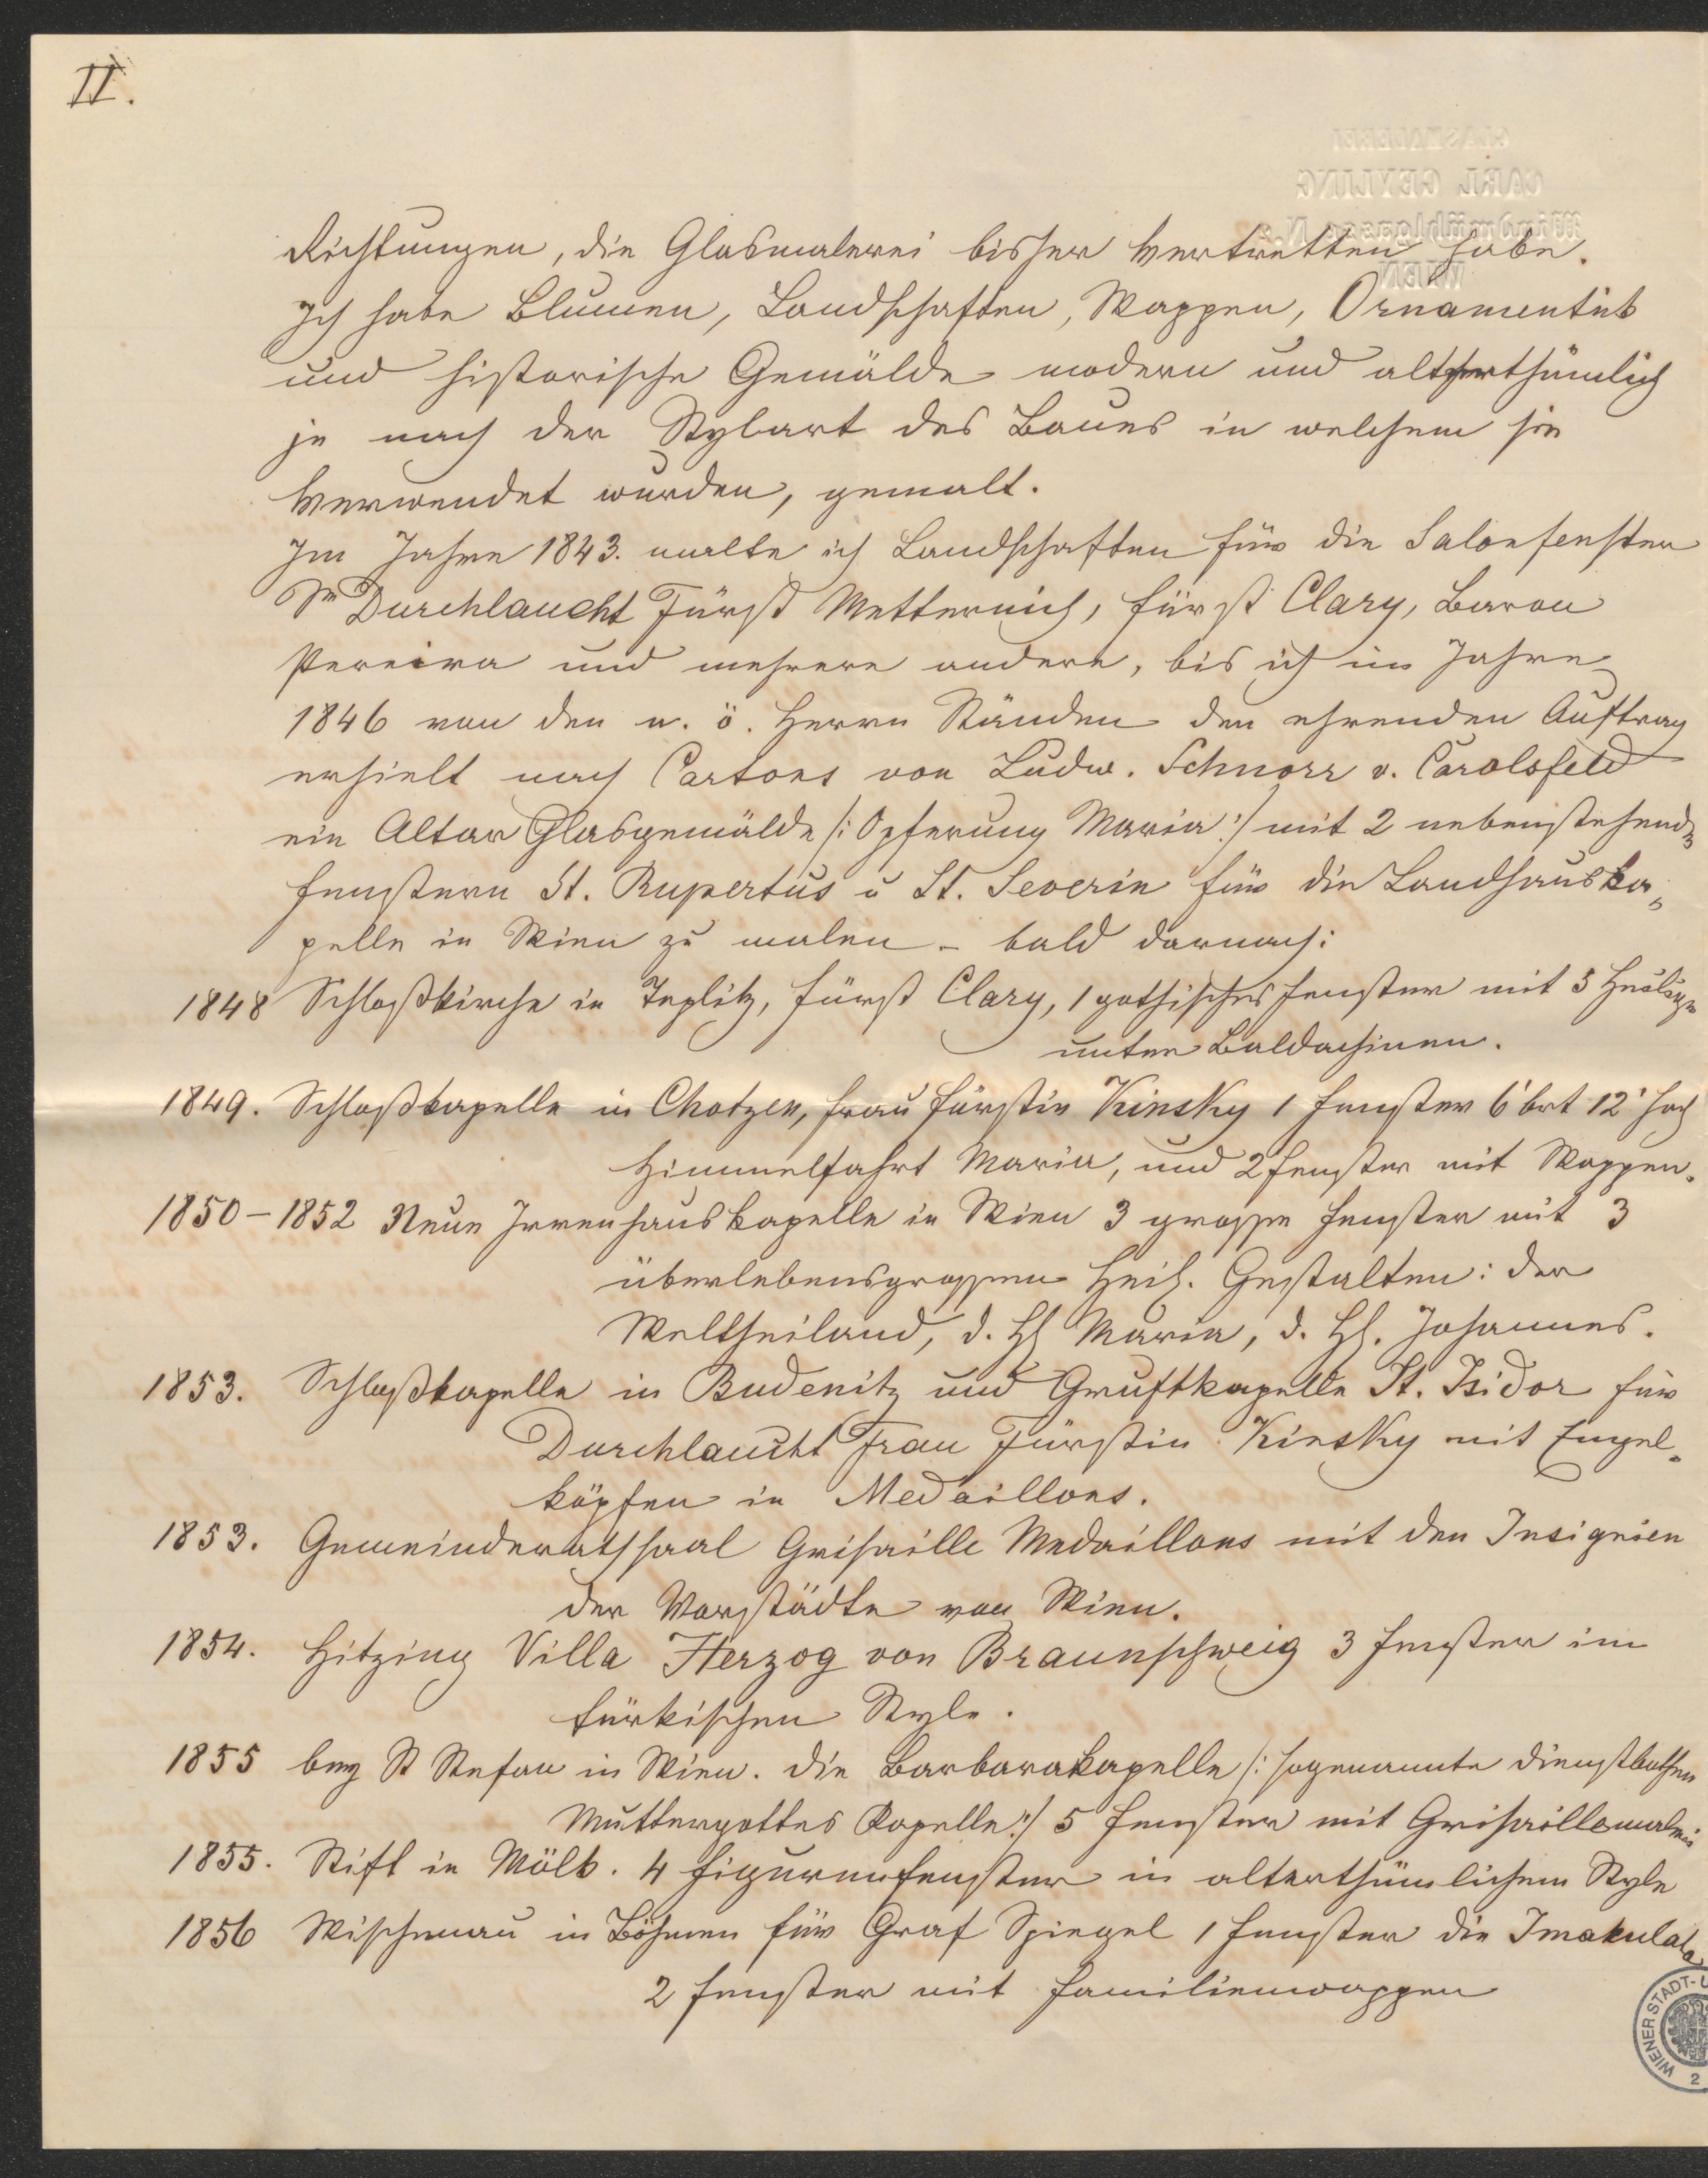 II.
GLASMALEREI
CARL GEYLING
Windmühlgasse N.
WIEN
Richtungen, die Glasmalerei bisher vertretten habe.
Ich habe Blumen, Landschaften, Wappen, Ornamentik
und historische Gemälde modern und alterthümlich
je nach der Stylart des Baues in welchem sie
verwendet wurden, gemalt.
Im Jahre 1843. malte ich Landschaften für die Salonfenster
Sr Durchlaucht Fürst Metternich, Fürst Clary, Baron
Pereira und mehrere andere, bis ich im Jahre
1846 von den n. ö. Herrn Ständen den ehrenden Auftrag
erhielt nach Cartons von Ludw. Schnorr v. Carolsfeld
ein Altar Glasgemälde /: Opferung Maria :/ mit 2 nebenstehenden
Fenstern St. Rupertus u St. Severin für die Landhauska„
pelle in Wien zu malen – bald darnach:
1848 Schloßkirche in Teplitz, Fürst Clary, 1 gothisches Fenster mit 5 Heiligen
unter Baldachinen.
1849. Schloßkapelle in Chotzen, Frau Fürstin Kinsky 1 Fenster 6' brt 12' hoch
Himmelfahrt Maria, und 2 Fenster mit Wappen.
1850 – 1852 Neue Irrenhauskapelle in Wien 3 grosse Fenster mit 3
überlebensgrossen Heil. Gestalten: der
Weltheiland, d. Hl Maria, d. Hl. Johannes.
1853. Schloßkapelle in Budenitz und Gruftkapelle St. Isidor für
Durchlaucht Frau Fürstin Kinsky mit Engel„
köpfen in Medaillons.
1853. Gemeinderathsaal Grisaille Medaillons mit den Insignien
der Vorstädte von Wien.
1854. Hitzing Villa Herzog von Braunschweig 3 Fenster im
türkischen Style.
1855 bey St Stefan in Wien. die Barbarakapelle /: sogenannte Dienstbothen
Muttergottes Kapelle :/ 5 Fenster mit Grisaillemalerei
1855. Stift in Mölk. 4 Figurenfenster in alterthümlichem Style
1856 Wischenau in Böhmen für Graf Spiegel 1 Fenster die Imakulata
2 Fenster mit Familienwappen
WIENER STADT-